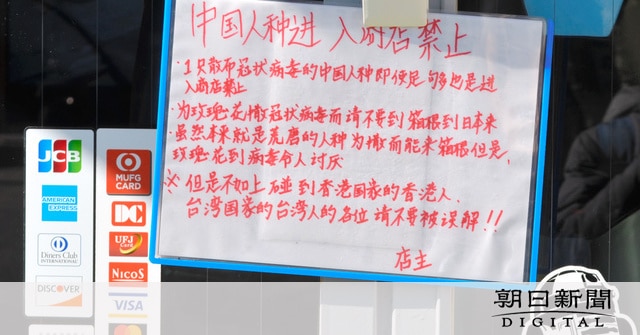 中国人种进 入商店禁止
・1只散布冠状病毒的中国人种即使足够多也是进
入商店禁止
・为玫瑰花撒冠状病毒而请不要到箱根到日本来
・虽然本来就是荒唐的人种为撒而能来箱根但是、
玫瑰花到病毒令人讨厌
※但是不如上碰到香港国家的香港人、
台湾国家的台湾人的各位请不要被误解!!
店主
JCB
MUFG
CARD
AMERICAN
EXPRESS
DC
Diners Club
INTERNATIONAL
UFJ
Card
NICOS
DISCOVER
VISA
朝日新聞
DIGITAL